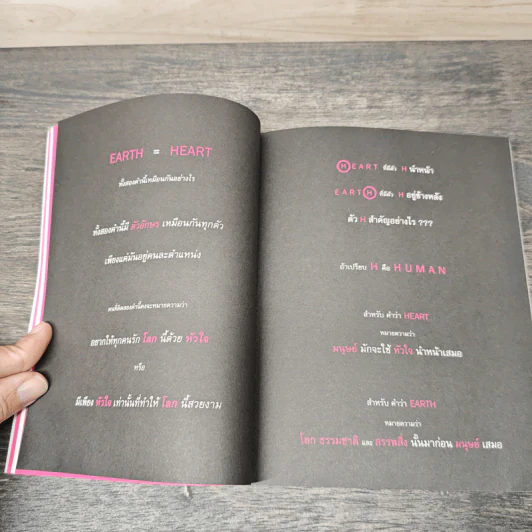 EARTH = HEART
ทั้งสองคำนี้เหมือนกันอย่างไร
ทั้งสองคำนี้มี ตัวอักษร เหมือนกันทุกตัว
เพียงแต่มันอยู่คนละตำแหน่ง
คนที่คิดสองคำนี้คงจะหมายความว่า
อยากให้ทุกคนรัก โลก นี้ด้วย หัวใจ
หรือ
มีเพียง หัวใจ เท่านั้นที่ทำให้ โลก นี้สวยงาม
HEART คือมีตัว H นำหน้า
EARTH คือมีตัว H อยู่ข้างหลัง
ตัว H สำคัญอย่างไร ???
ถ้าเปรียบ H คือ HUMAN
สำหรับ คำว่า HEART
หมายความว่า
มนุษย์ มักจะใช้ หัวใจ นำหน้าเสมอ
สำหรับ คำว่า EARTH
หมายความว่า
โลก ธรรมชาติ และ สรรพสิ่ง นั้นมาก่อน มนุษย์ เสมอ